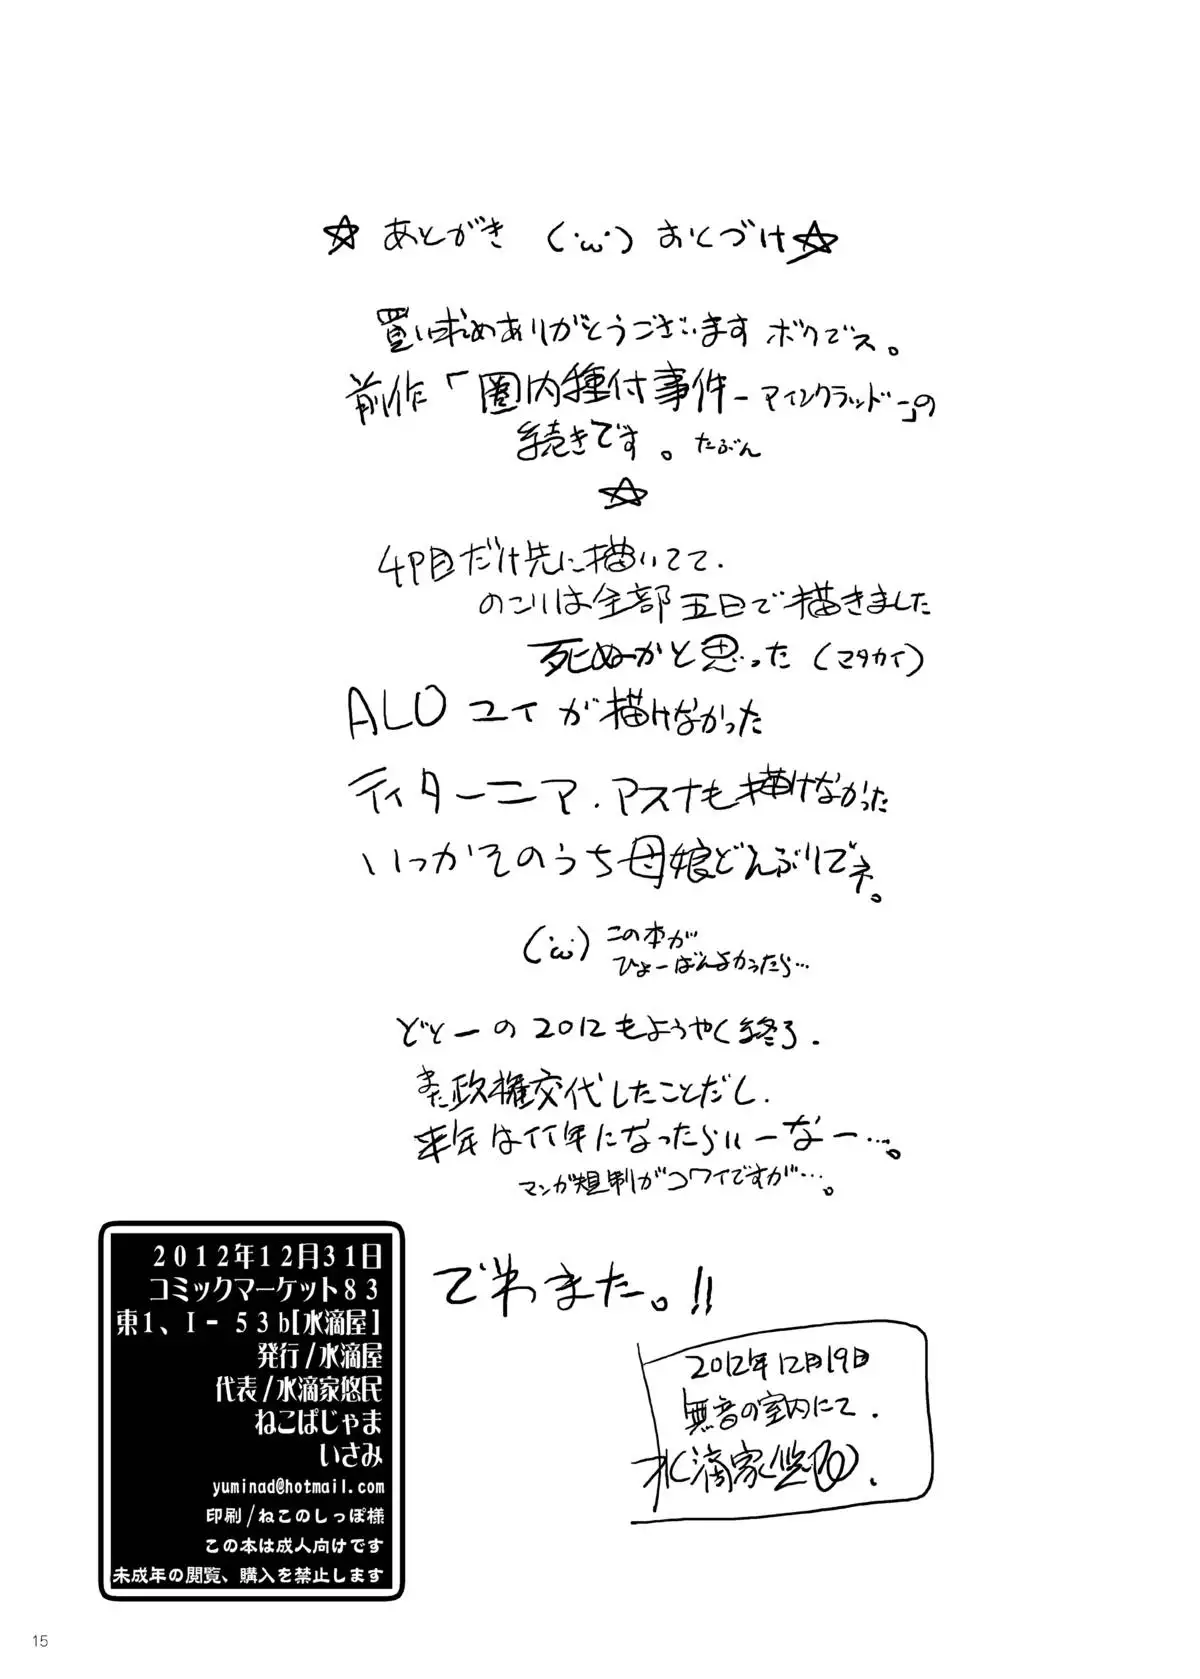 ☆ あとがき (´ω`) おくづけ☆
買い求めありがとうございます ボクでス。
前作「圏内種付事件-アインクラッド-」の
続きです。たぶん
☆
4P目だけ先に描いてて、
のこりは全部五日で描きました
死ぬかと思った(マタカイ)
ALO ユイが描けなかった
ティターニア、アスナも描けなかった
いっかそのうち母娘どんぶりでネ。
(´ω`) この本が
ひょーばんよかったら…
どとーの2012もようやく終了、
また政権交代したことだし、
来年はイイ年になったらいーなー…。
マンガ規制がコワイですが…。
でわまた。!!
2012年12月19日
無音の室内にて、
水滴家悠民、
2012年12月31日
コミックマーケット83
東1、I-53b[水滴屋]
発行/水滴屋
代表/水滴家悠民
ねこぱじゃま
いさみ
yuminad@hotmail.com
印刷/ねこのしっぽ様
この本は成人向けです
未成年の閲覧、購入を禁止します
15